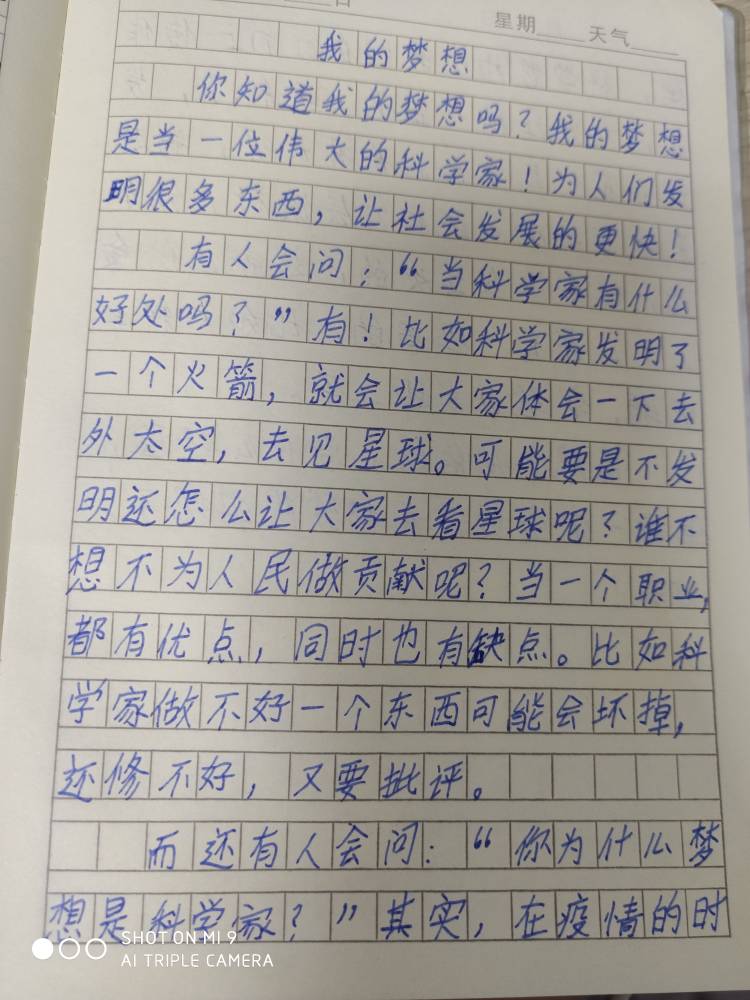 日
星期 天气
我的梦想
你知道我的梦想吗？我的梦想
是当一位伟大的科学家！为人们发
明很多东西，让社会发展的更快！
有人会问：“当科学家有什么
好处吗？”有！比如科学家发明了
一个火箭，就会让大家体会一下去
外太空，去见星球。可能要是不发
明还怎么让大家去看星球呢？谁不
想不为人民做贡献呢？当一个职业，
都有优点，同时也有缺点。比如科
学家做不好一个东西可能会坏掉，
还修不好，又要批评。
而还有人会问：“你为什么梦
想是科学家？”其实，在疫情的时
SHOT ON MI 9
AI TRIPLE CAMERA